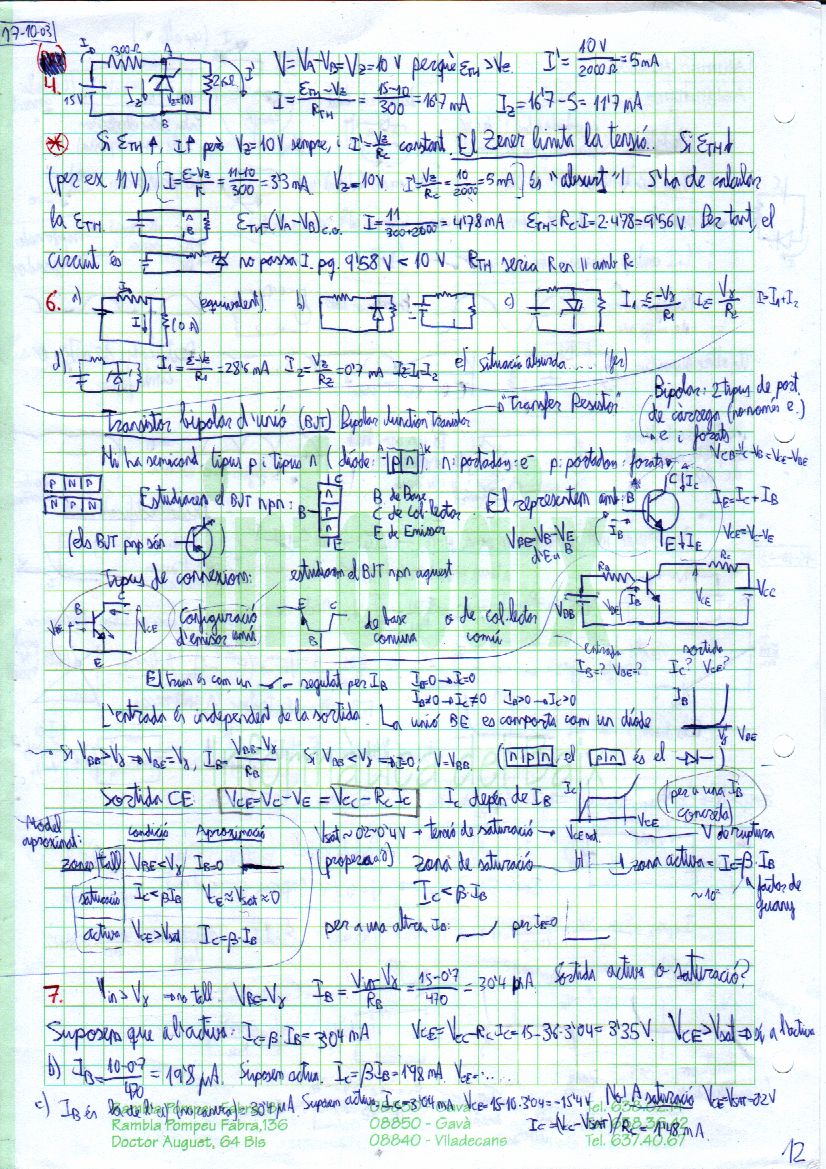 17-10-03
4. 15V 300Ω A B I_Z V_Z=10V 2kΩ I' V=V_A-V_B=V_Z=10V perquè ε_TH>V_Z. I'=10V/2000Ω=5mA
I=(ε_TH-V_Z)/R_TH=(15-10)/300=16'7mA I_Z=16'7-5=11'7mA
* Si ε_TH↑, I↑ però V_Z=10V sempre, i I'=V_Z/R_C constant. El Zener limita la tensió. Si ε_TH↓
(per ex 11V), [I=(ε-V_Z)/R=(11-10)/300=3'3mA V_Z=10V I'=V_Z/R_C=10/2000=5mA] És "absurt"! S'ha de calcular
la ε_TH. A B ε_TH=(V_A-V_B)c.o. I=11/(300+2000)=4'78mA ε_TH=R_C·I=2·4'78=9'56V. Per tant, el
circuit és no passa I. pq. 9'58V<10V. R_TH seria R en || amb R_C
6. a) I (0A) (equivalent). b) = c) I_1=(ε-Vγ)/R_1 I_2=Vγ/R_2 I=I_1+I_2
d) I_1=(ε-V_Z)/R_1=28'6mA I_2=V_Z/R_2=0'7mA I_Z=I_1-I_2 e) situació absurda.... (fer)
Transistor bipolar d'unió (BJT) Bipolar Junction Transistor → "Transfer Resistor"
Bipolar: 2 tipus de port.
de càrrega (no només e⁻)
→ e⁻ i forats
Hi ha semicond. tipus p i tipus n (díode: A p n K) n: portadors: e⁻ p: portadors: forats V_CB=V_C-V_B=V_CE-V_BE
P N P
N P N
Estudiarem el BJT npn: B C n p n E B de Base
C de Col·lector
E de Emissor
El representem amb: B C↓I_C I_B E↓I_E I_E=I_C+I_B
V_BE=V_B-V_E V_CE=V_C-V_E
d'E a B
(els BJT pnp són )
Tipus de connexions: estudiarem el BJT npn aquest
V_BE B C E V_CE Configuració
d'emissor comú
E C B de base
comuna
o de col·lector
comú
V_BB R_B V_BE I_B V_CE R_C V_CC
entrada sortida
I_B=? V_BE=? I_C? V_CE?
El trans és com un regulat per I_B I_B=0→I_C=0
I_B≠0→I_C≠0 I_B>0→I_C>0
L'entrada és independent de la sortida. La unió BE es comporta com un díode I_B Vγ V_BE
→ Si V_BB>Vγ⇒V_BE=Vγ, I_B=(V_BB-Vγ)/R_B Si V_BB<Vγ⇒I=0; V=V_BB (n p n, el p n és el )
Sortida CE: V_CE=V_C-V_E=V_CC-R_C I_C I_C depèn de I_B I_C V_CE sat. V_CE (per a una I_B
concreta)
V de ruptura
Model
aproximat: condició Aproximació
zones tall V_BE<Vγ I_B=0
saturació I_C<βI_B V_CE≈V_sat≈0
activa V_CE>V_sat I_C=β·I_B
V_sat~0'2-0'4V → tensió de saturació
(propera a 0) zona de saturació
I_C<β·I_B
zona activa=I_C=β·I_B
~10² factor de
guany
per a una altra I_B: per I_B=0
7. V_in>Vγ → no tall. V_BE=Vγ I_B=(V_in-Vγ)/R_B=(15-0'7)/470=30'4μA. Sortida activa o saturació?
Suposem que a l'activa: I_C=β·I_B=3'04mA V_CE=V_CC-R_C I_C=15-3'6·3'04=3'35V. V_CE>V_sat⇒sí a l'activa
b) I_B=(10-0'7)/470=19'8μA. Suposem activa. I_C=βI_B=1'98mA V_CE=....
c) I_B és 30'4μA Suposem activa, I_C=3'04mA V_CE=15-10·3'04=-15'4V No! A saturació V_CE=V_sat=0'2V
I_C=(V_CC-V_sat)/R_C=1'48mA
Rambla Pompeu Fabra,136 08850 - Gavà
Doctor Auguet, 64 Bis 08840 - Viladecans Tel. 637.40.67
12